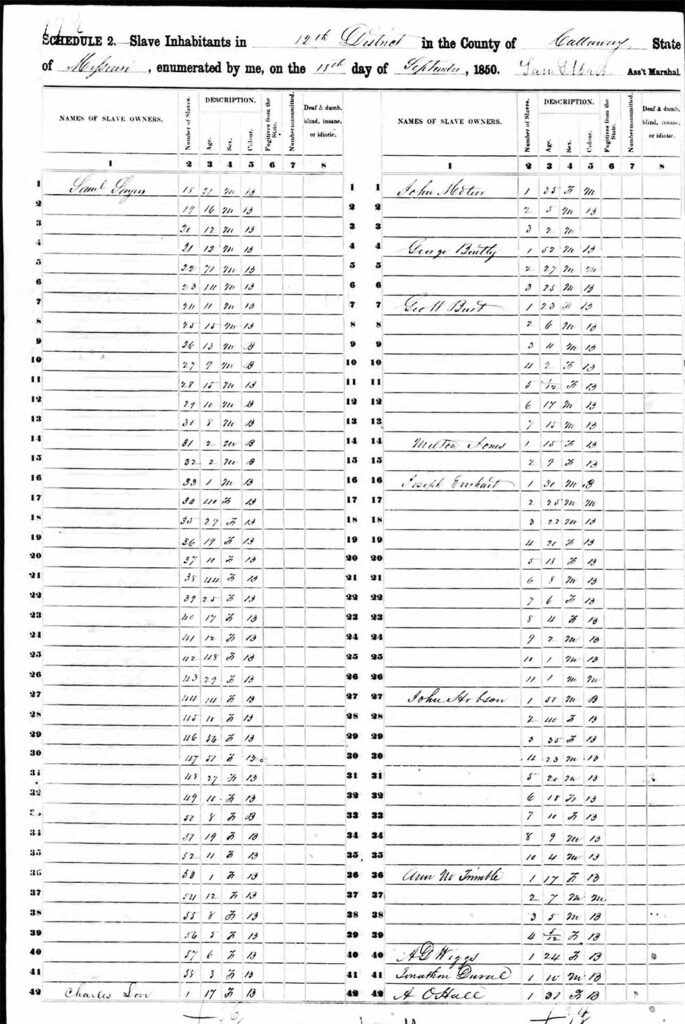 SCHEDULE 2. Slave Inhabitants in 12th District in the County of Callaway State
of Missouri, enumerated by me, on the 13th day of September, 1850. Ass't Marshal
NAMES OF SLAVE OWNERS.
Number of Slaves.
DESCRIPTION.
Age. Sex. Colour.
Fugitives from the State.
Number manumitted.
Deaf & dumb, blind, insane, or idiotic.
1 2 3 4 5 6 7 8
1 18 21 M B 1
2 19 16 M B 2
3 20 12 M B 3
4 21 12 M B 4
5 22 71 M B 5
6 23 14 M B 6
7 24 11 M B 7
8 25 15 M B 8
9 26 13 M B 9
10 27 9 M B 10
11 28 15 M B 11
12 29 10 M B 12
13 30 8 M B 13
14 31 2 M B 14
15 32 2 M B 15
16 33 1 M B 16
17 34 40 F B 17
18 35 27 F B 18
19 36 19 F B 19
20 37 10 F B 20
21 38 44 F B 21
22 39 25 F B 22
23 40 17 F B 23
24 41 12 F B 24
25 42 48 F B 25
26 43 29 F B 26
27 44 14 F B 27
28 45 10 F B 28
29 46 56 F B 29
30 47 51 F B 30
31 48 27 F B 31
32 49 10 F B 32
33 50 8 F B 33
34 51 19 F B 34
35 52 11 F B 35
36 53 1 F B 36
37 54 12 F B 37
38 55 8 F B 38
39 56 5 F B 39
40 57 6 F B 40
41 58 3 F B 41
42 Charles 1 17 F B 42
NAMES OF SLAVE OWNERS.
Number of Slaves.
DESCRIPTION.
Age. Sex. Colour.
Fugitives from the State.
Number manumitted.
Deaf & dumb, blind, insane, or idiotic.
1 2 3 4 5 6 7 8
1 John 1 35 F M
2 2 5 M B
3 3 2 M
4 George Bently 1 52 M B
5 2 27 M M
6 3 25 M B
7 Geo W Burt 1 23 F B
8 2 6 M B
9 3 4 M B
10 4 2 F B
11 5 F B
12 6 17 M B
13 7 15 M B
14 Milton 1 15 F B
15 2 9 F B
16 Joseph 1 30 M B
17 2 25 M M
18 3 22 M B
19 4 21 F B
20 5 18 F B
21 6 8 M B
22 7 6 F B
23 8 4 F B
24 9 2 M B
25 10 1 M B
26 11 1 M M
27 John Hobson 1 51 M B
28 2 40 F B
29 3 35 F B
30 4 23 M B
31 5 20 M B
32 6 18 F B
33 7 10 F B
34 8 9 M B
35 10 4 M B
36 Ann M Trimble 1 17 F B
37 2 7 M M
38 3 5 M B
39 4 F B
40 A D Wiggs 1 24 F B
41 Jonathon Duval 1 10 M B
42 A O Hall 1 31 F B